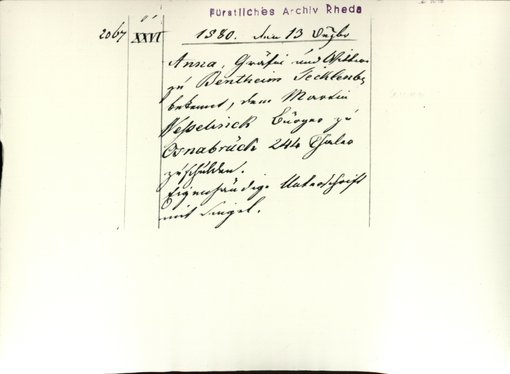 Fürstliches Archiv Rheda
2067 XXVI 1580. den 13 Dezbr
Anna, Gräfin und Wittwe
zu Bentheim Tecklenbg
bekennt, dem Martin
Bürger zu
Osnabrück 244 Thaler
zu schulden.
Eigenhändige Unterschrift
mit Siegel.